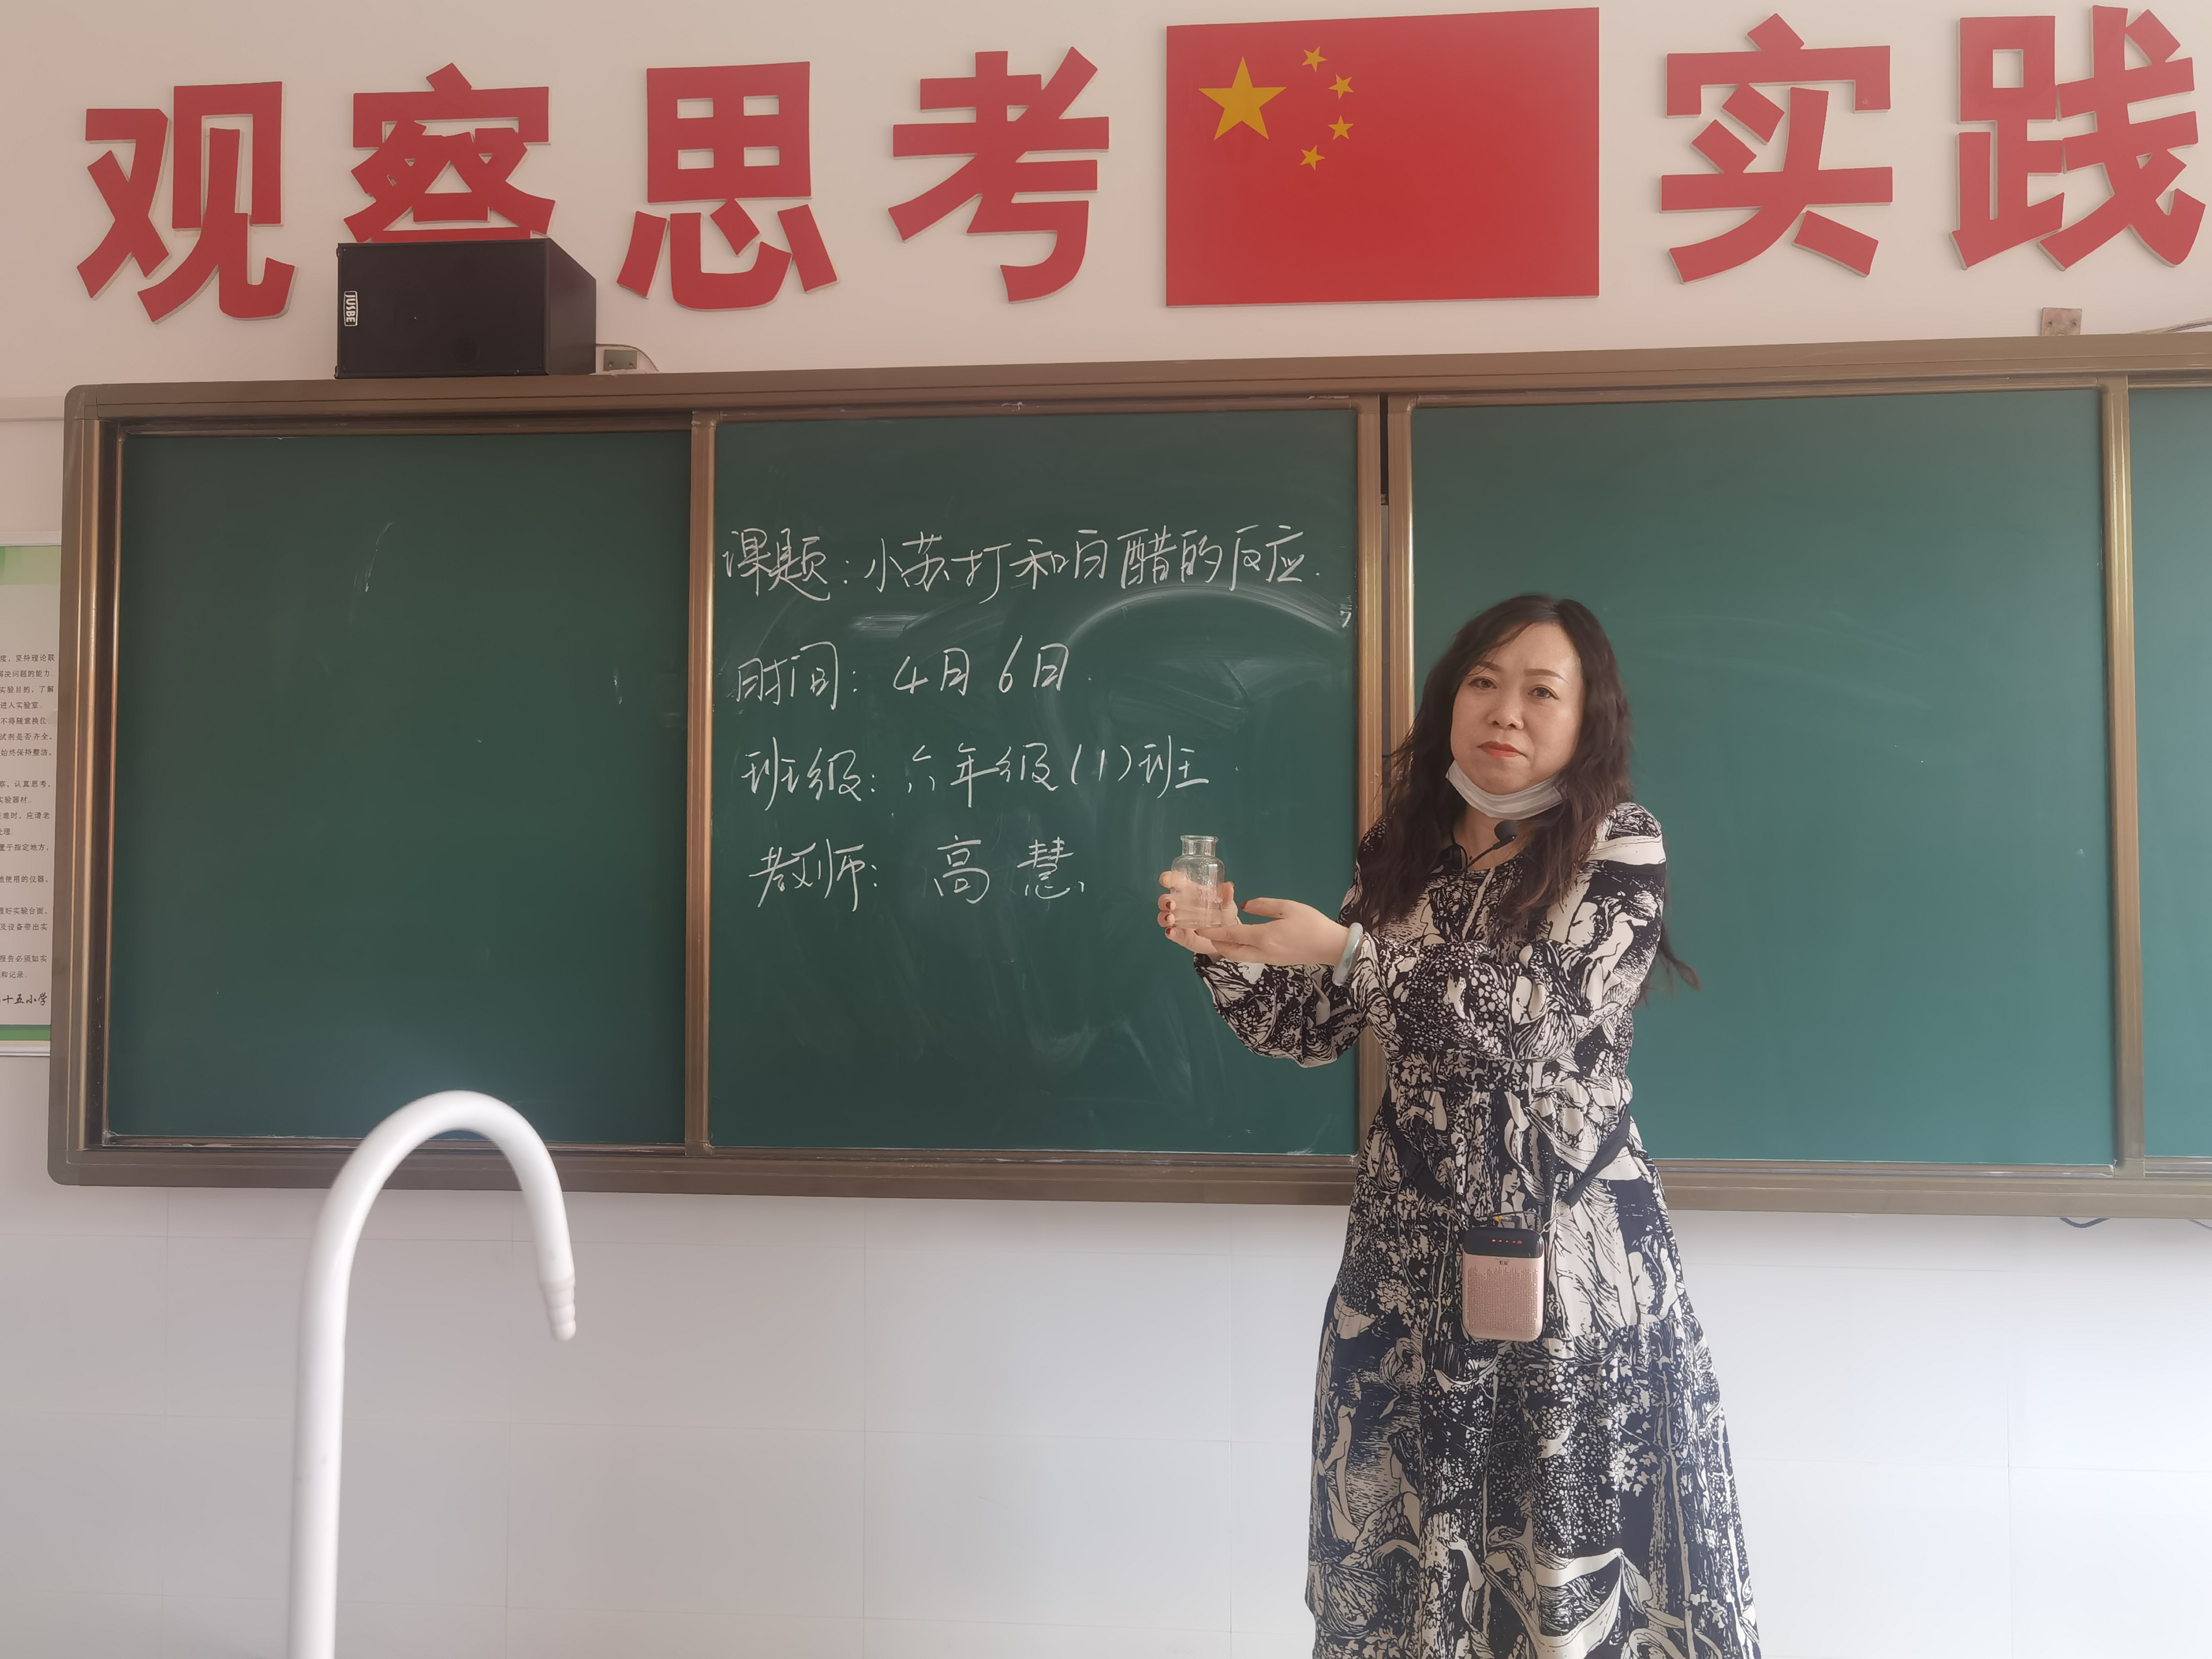 观察思考 实践
JUSBE
课题：小苏打和白醋的反应.
时间：4月6日.
班级：六年级(1)班.
教师：高慧
度，坚持理论联
解决问题的能力
实验目的，了解
进入实验室.
不得随意换位
试剂是否齐全，
始终保持整洁，
察，认真思考，
实验器材.
故难时，应请老
处理.
置于指定地方，
他使用的仪器，
理好实验台面，
及设备带出实
报告必须如实
和记录.
十五小学